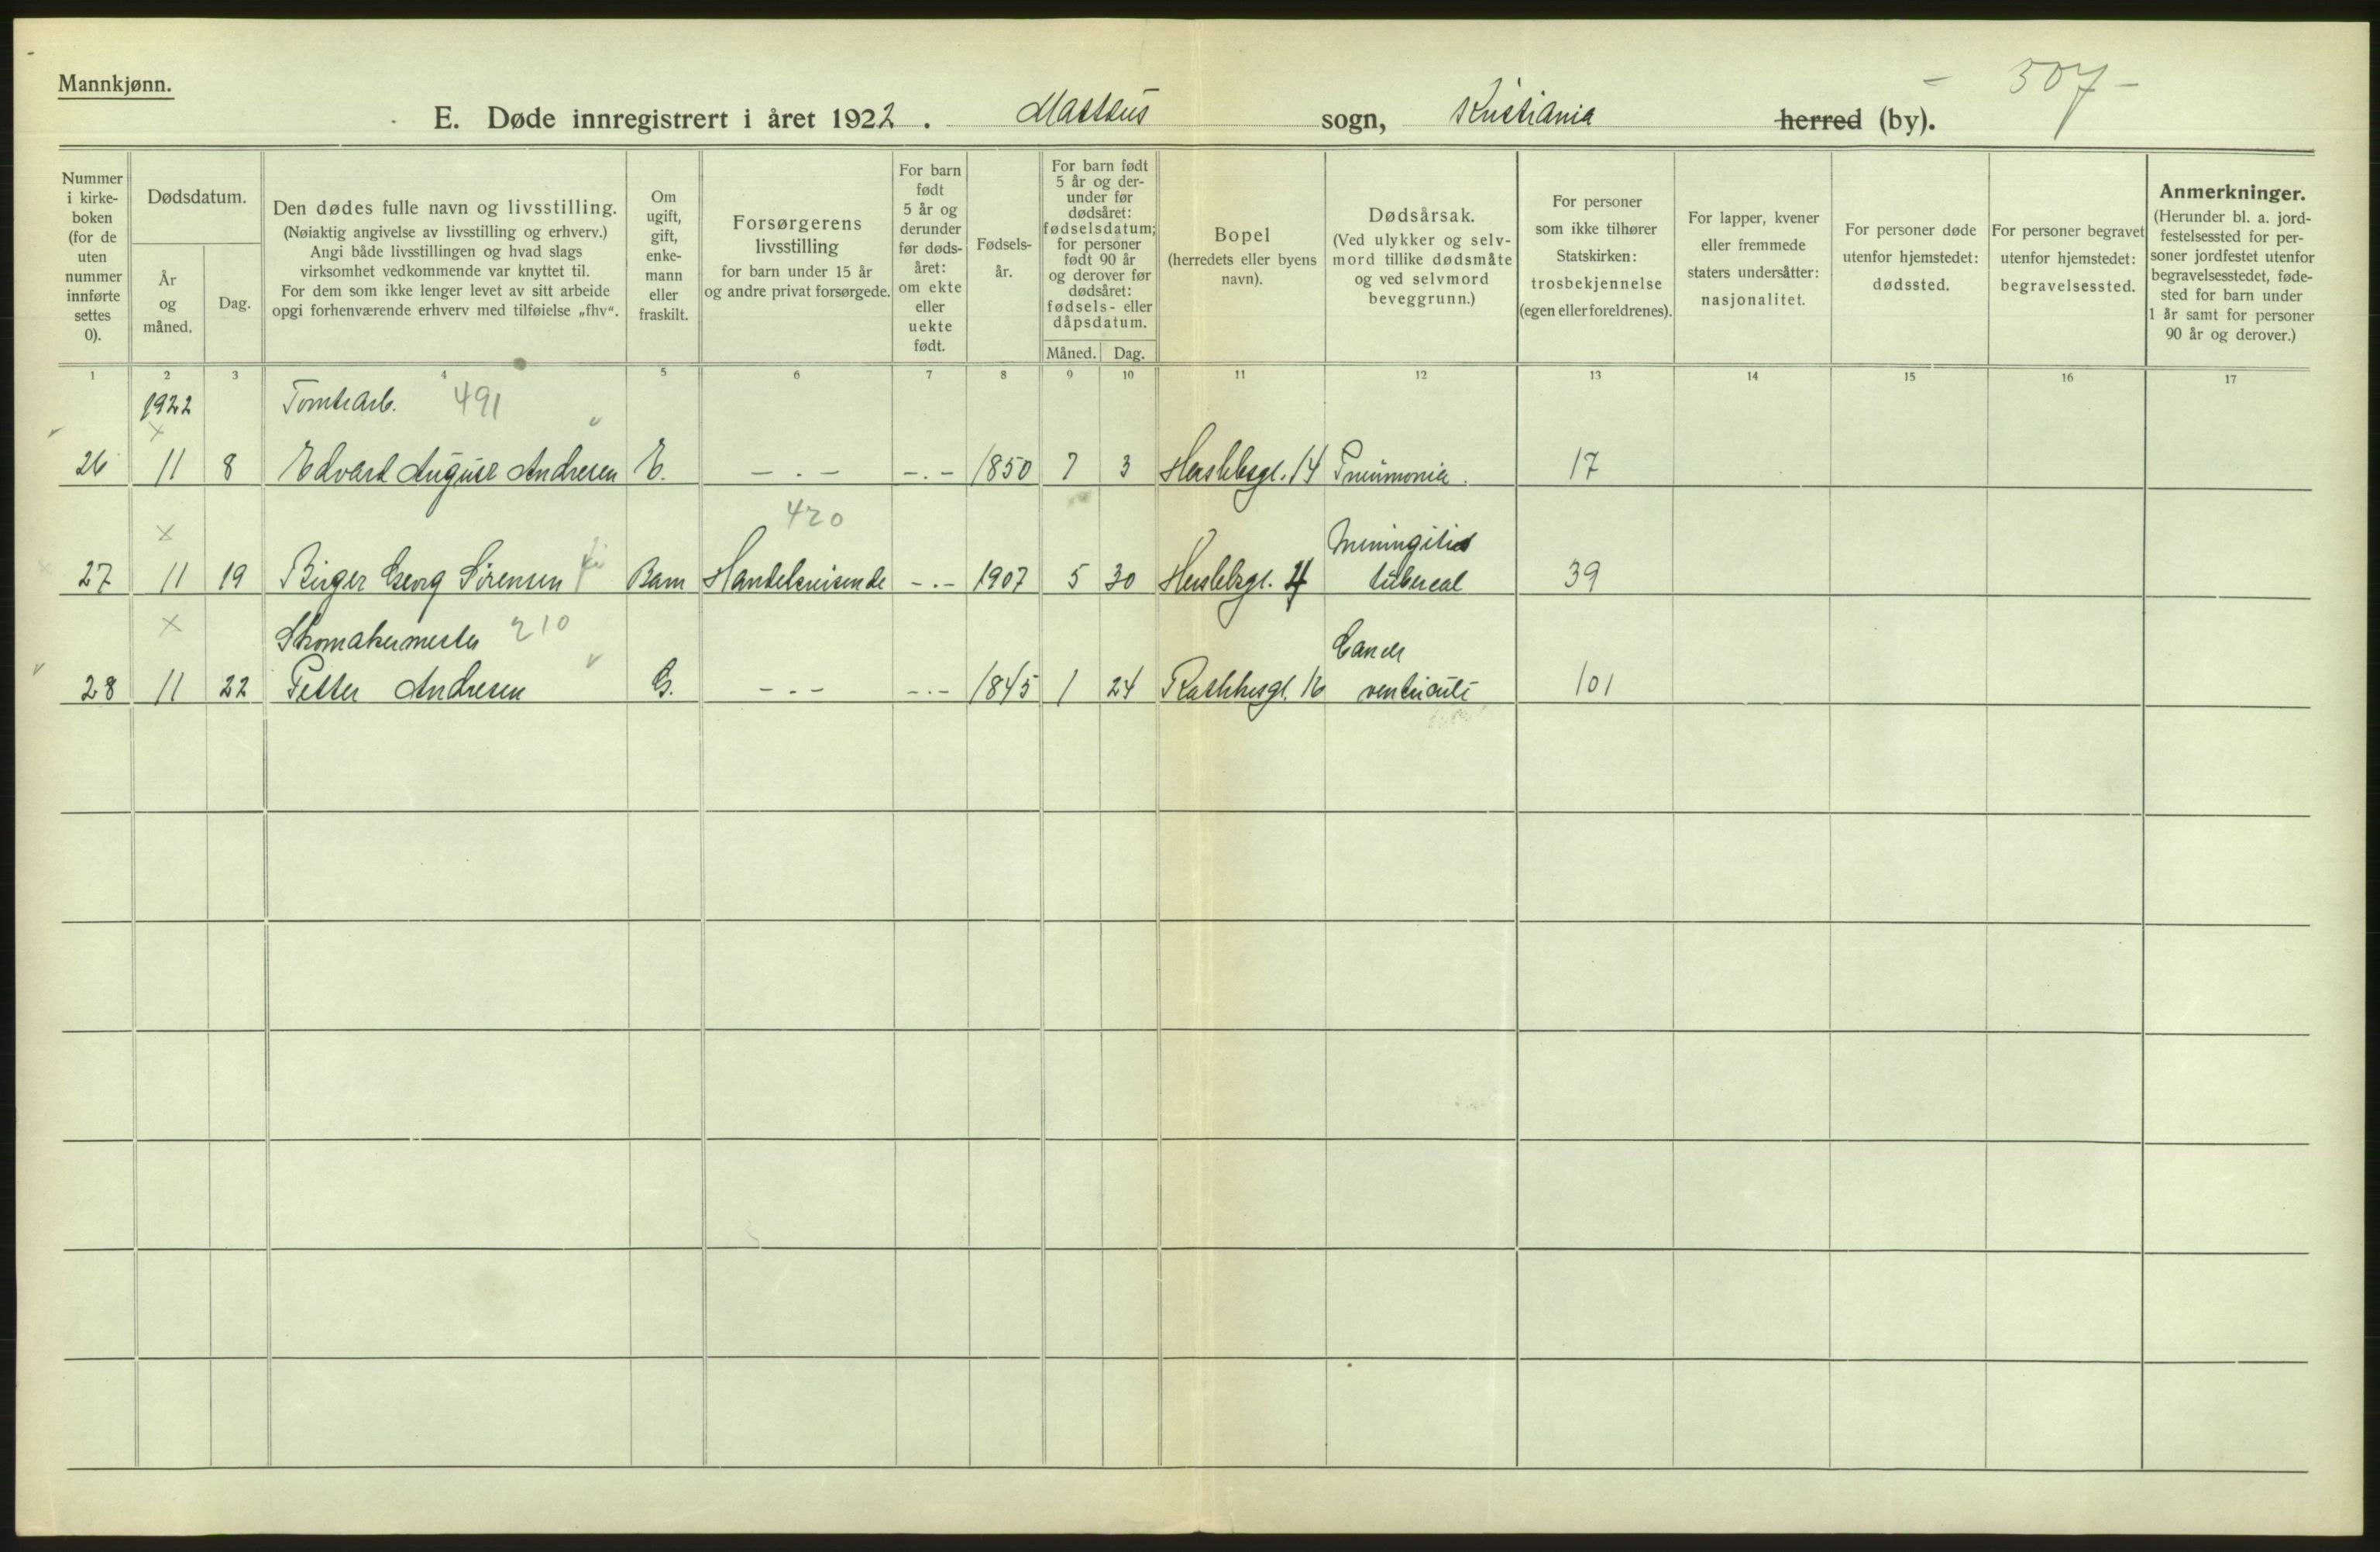 Mannkjønn.
- 507 -
E. Døde innregistrert i året 1922. Matteus sogn, Kristiania herred (by).
Nummer i kirke-boken (for de uten nummer innførte settes 0).
Dødsdatum.
År og måned.
Dag.
Den dødes fulle navn og livsstilling.
(Nøiaktig angivelse av livsstilling og erhverv.)
Angi både livsstillingen og hvad slags
virksomhet vedkommende var knyttet til.
For dem som ikke lenger levet av sitt arbeide
opgi forhenværende erhverv med tilføielse „fhv“.
Om
ugift,
gift,
enke-
mann
eller
fraskilt.
Forsørgerens
livsstilling
for barn under 15 år
og andre privat forsørgede.
For barn
født
5 år og
derunder
før døds-
året:
om ekte
eller
uekte
født.
Fødsels-
år.
For barn født
5 år og der-
under før
dødsåret:
fødselsdatum;
for personer
født 90 år
og derover før
dødsåret:
fødsels- eller
dåpsdatum.
Måned. Dag.
Bopel
(herredets eller byens
navn).
Dødsårsak.
(Ved ulykker og selv-
mord tillike dødsmåte
og ved selvmord
beveggrunn.)
For personer
som ikke tilhører
Statskirken:
trosbekjennelse
(egen eller foreldrenes).
For lapper, kvener
eller fremmede
staters undersåtter:
nasjonalitet.
For personer døde
utenfor hjemstedet:
dødssted.
For personer begravet
utenfor hjemstedet:
begravelsessted.
Anmerkninger.
(Herunder bl. a. jord-
festelsessted for per-
soner jordfestet utenfor
begravelsesstedet, føde-
sted for barn under
1 år samt for personer
90 år og derover.)
1 2 3 4 5 6 7 8 9 10 11 12 13 14 15 16 17
1922 Tomtearb. 491
26 11 8 Edvard August Andresen E. - . - - . - 1850 7 3 Herslebsgt. 14 Pneumonia. 17
420 Meningitis
27 11 19 Birger Georg Sørensen Barn Handelsreisende - . - 1907 5 30 Herslebsgt. 4 tubercul 39
Skomakermester 210 Cancer
28 11 22 Petter Andresen G. - . - - . - 1845 1 24 Rathkesgt. 16 ventriculi 101